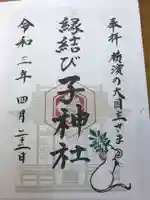 奉拝 横濱の大国主さま
縁結び
子神社
令和三年四月二十三日